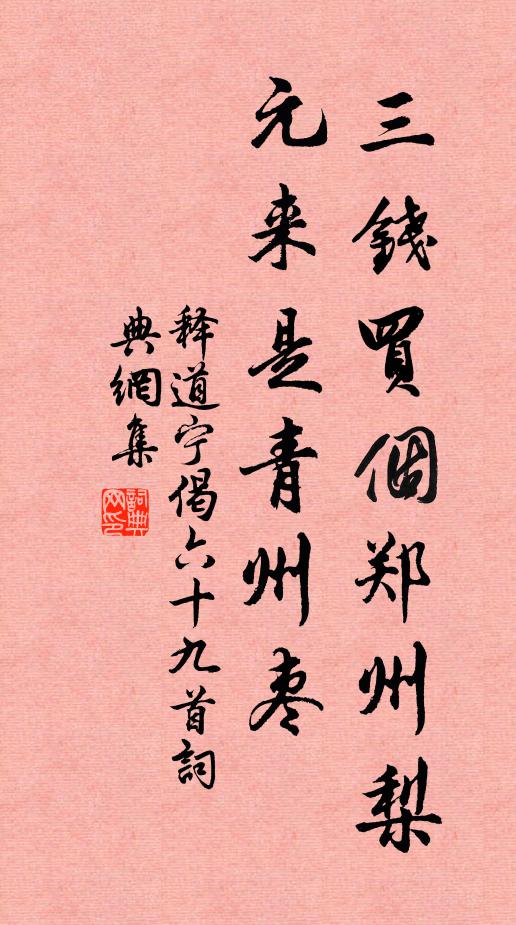 三錢買個郑州梨
元来是青州枣
释道宁偈六十九首詞
典網集
詞典网印